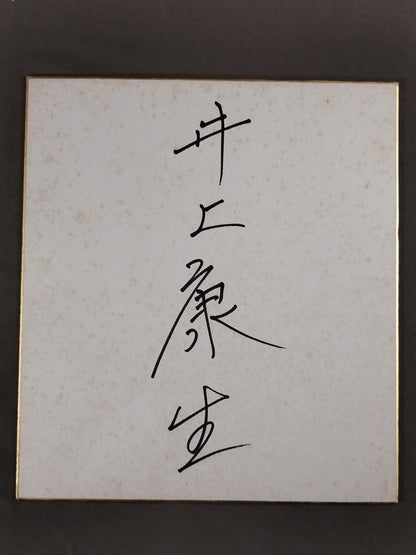 井上康生